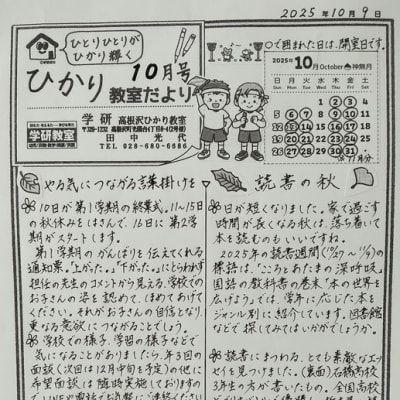 2025年10月9日
ひとりひとりが
ひかり輝く
ひかり
10月号
教室だより
学研教室
学研 高根沢ひかり教室
田中光代
TEL 028-680-6686
○で囲まれた日は、開室日です。
2025年 10月 October 神無月
日 月 火 水 木 金 土
1 2 3 4
5 6 7 8 9 10 11
12 13 14 15 16 17 18
19 20 21 22 23 24 25
26 27 28 29 30 31
やる気につながる言葉掛けを
10日が第1学期の終業式。11〜15日
の秋休みをはさんで、16日に第2学
期がスタートします。
第1学期のがんばりを伝えてくれる
通知票。「上がった。」「下がった。」にとらわれず
担任の先生のコメントから見える、学校での
お子さんの姿を認めて、ほめてあげて
ください。それがお子さんの自信となり、
更なる意欲につながることでしょう。
学校での様子、学習の様子などで
気になることがありましたら、年3回の
面談(次回は12月中旬を予定)の他に
希望面談は随時実施しておりますの
読書の秋
日が短くなりました。家で過ごす
時間が長くなる秋は、落ち着いて
本を読むのもいいですね。
2025年の読書週間(10/27〜11/9)の
標語は、「こころとあたまの深呼吸」。
国語の教科書の巻末「本の世界を
広げよう」では、学年に応じた本を
ジャンル別に紹介しています。図書館
などで探してみてはいかがでしょうか。
読書にまつわる、とても素敵なエッ
セイを見つました。(裏面)石橋高校
3年生の方が書いたもの。全国高校